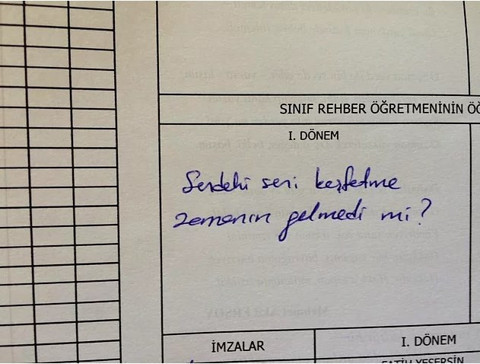 SINIF REHBER ÖĞRETMENİNİN ÖĞ
I. DÖNEM
Sendeki seni keşfetme
zamanın gelmedi mi?
İMZALAR
I. DÖNEM
FATİH YEŞERSİN